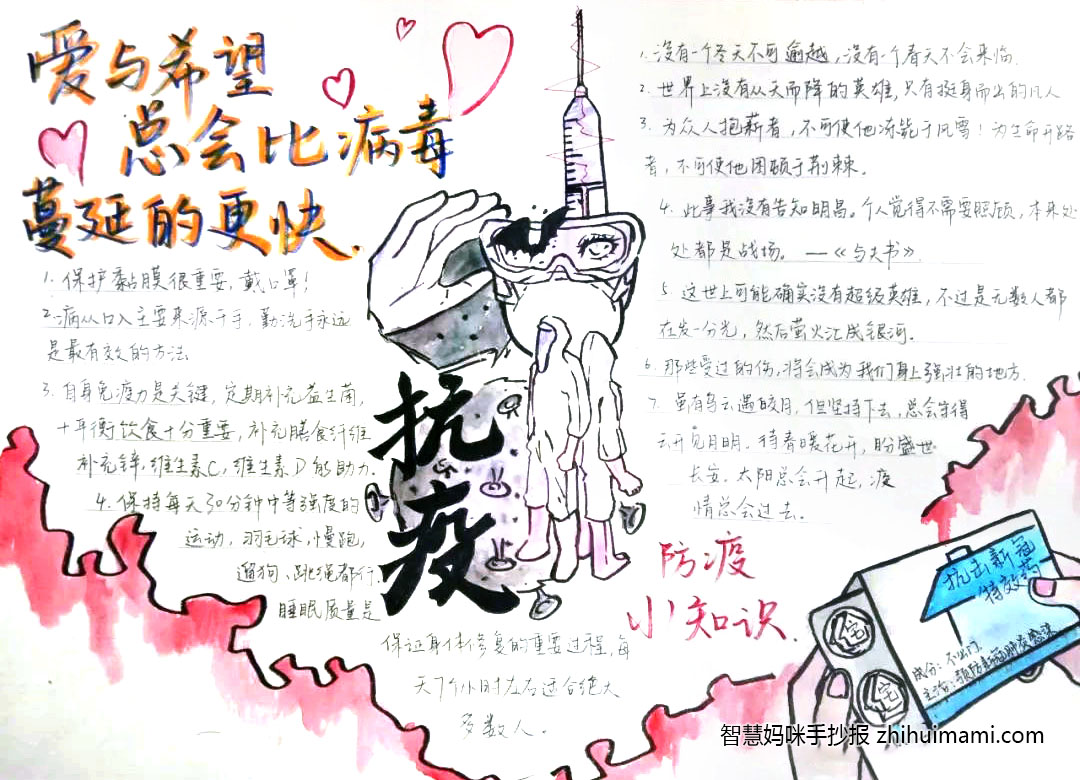 爱与希望
总会比病毒
蔓延的更快.
1. 保护黏膜很重要，戴口罩！
2. 病从口入主要来源于手，勤洗手永远
是最有效的方法
3. 自身免疫力是关键，定期补充益生菌，
平衡饮食十分重要，补充膳食纤维
补充锌，维生素C，维生素D能助力.
4. 保持每天30分钟中等强度的
运动，羽毛球，慢跑，
遛狗、跳绳都行.
睡眠质量是
保证身体修复的重要过程，每
天7个小时左右适合绝大
多数人.
抗
疫
1. 没有一个冬天不可逾越，没有一个春天不会来临.
2. 世界上没有从天而降的英雄，只有挺身而出的凡人
3. 为众人抱薪者，不可使他冻毙于风雪！为生命开路
者，不可使他困顿于荆棘.
4. 此事我没有告知明昌。个人觉得不需要照顾，本来处
处都是战场。 —《与夫书》
5. 这世上可能确实没有超级英雄，不过是无数人都
在发一分光，然后萤火汇成银河.
6. 那些受过的伤，将会成为我们身上强壮的地方.
7. 虽有乌云遇皎月，但坚持下去，总会守得
云开见月明. 待春暖花开，盼盛世
长安. 太阳总会升起，疫
情总会过去.
防疫
小知识.
抗击新冠
特效药
宅
宅
成分：不出门
主治：预防新冠肺炎感染
智慧妈咪手抄报 zhihuimami.com